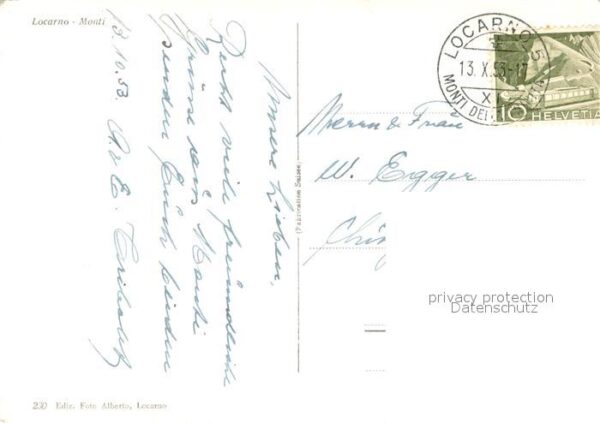 Locarno - Monti
Unsere Lieben,
Recht viele freundliche
Grüsse aus Monti
senden Euch beiden
A. & E.
13.10.53.
Herrn & Frau
W. Egger
(Fabrication Suisse)
LOCARNO 5
13.X.53-17
X
MONTI DEI
10 HELVETIA
privacy protection
Datenschutz
230 Ediz. Foto Alberto, Locarno